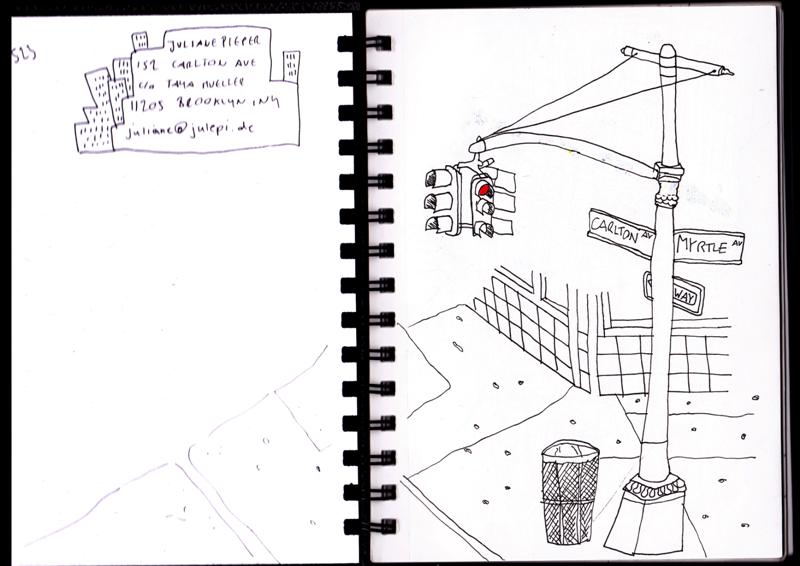 JULIANE PIEPER
152 CARLTON AVE
c/o TANJA MUELLER
11205 BROOKLYN, NY
juliane@julepi.de
CARLTON AV
MYRTLE AV
WAY